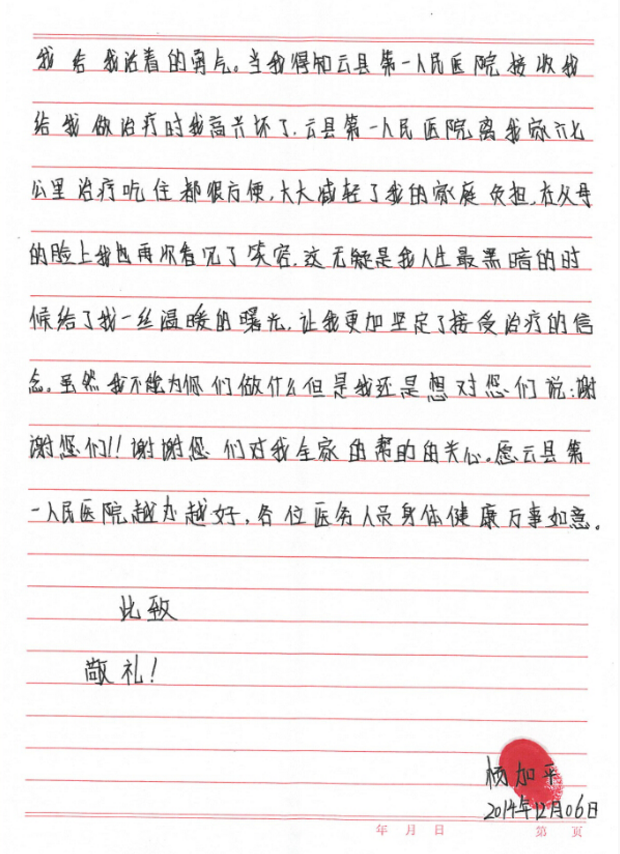 我给我活着的勇气。当我得知云县第一人民医院接收我
给我做治疗时我高兴坏了.云县第一人民医院离我家六七
公里治疗吃住都很方便,大大减轻了我的家庭负担,在父母
的脸上我也再次看见了笑容,这无疑是我人生最黑暗的时
候给了我一丝温暖的曙光,让我更加坚定了接受治疗的信
念。虽然我不能为你们做什么但是我还是想对您们说:谢
谢您们!!谢谢您们对我全家的帮助的关心。愿云县第
一人民医院越办越好,各位医务人员身体健康万事如意。
此致
敬礼!
杨加平
2014年12月06日
年 月 日 第 页